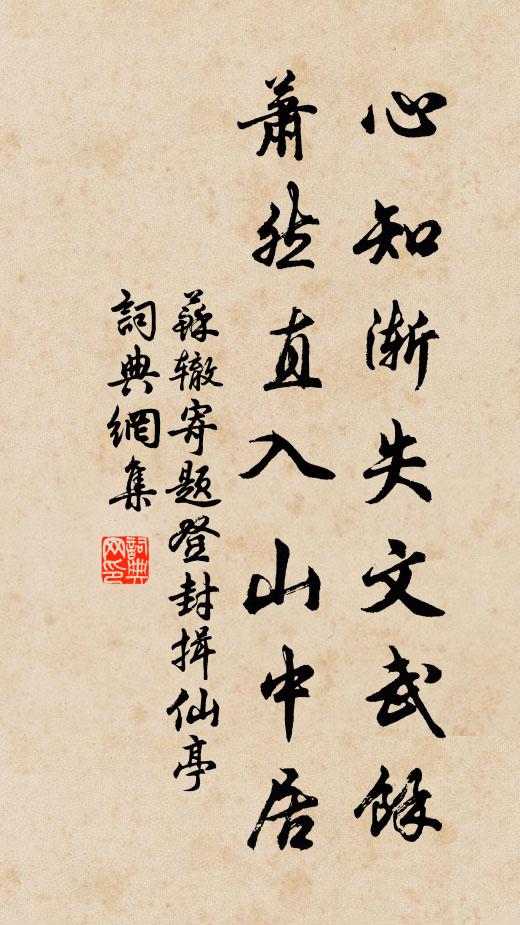 心知渐失文武餘
萧然直入山中居
蘇辙寄题登封揖仙亭
詞典網集
詞典網印